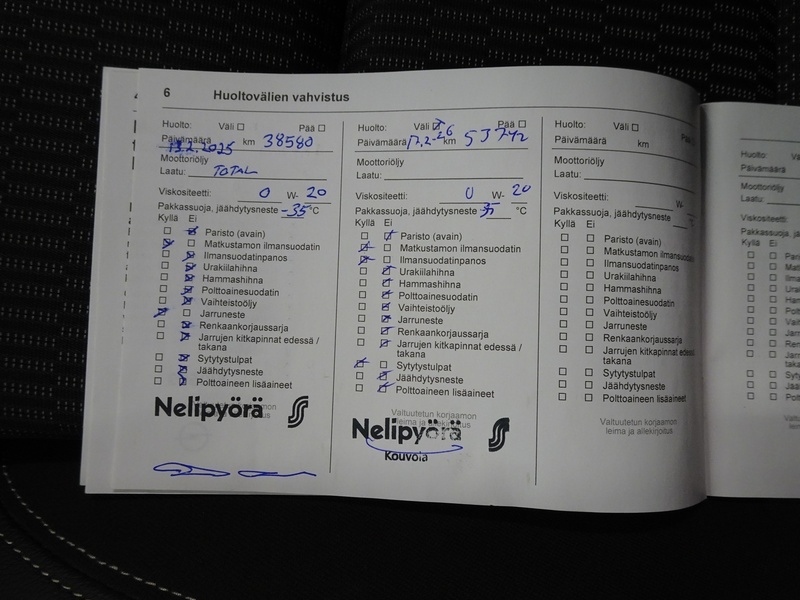 6 Huoltovälien vahvistus
Huolto: Väli ☐ Pää ☐
Päivämäärä 13.2.2025 km 38580
Moottoriöljy
Laatu: TOTAL
Viskositeetti: 0 W- 20
Pakkassuoja, jäähdytysneste -35 °C
Kyllä Ei
Paristo (avain)
Matkustamon ilmansuodatin
Ilmansuodatinpanos
Urakiilahihna
Hammashihna
Polttoainesuodatin
Vaihteistoöljy
Jarruneste
Renkaankorjaussarja
Jarrujen kitkapinnat edessä /
takana
Sytytystulpat
Jäähdytysneste
Polttoaineen lisäaineet
Nelipyörä
Huolto: Väli ☒ Pää ☐
Päivämäärä 17.2-26 km 53742
Moottoriöljy
Laatu:
Viskositeetti: 0 W- 20
Pakkassuoja, jäähdytysneste °C
Kyllä Ei
Paristo (avain)
Matkustamon ilmansuodatin
Ilmansuodatinpanos
Urakiilahihna
Hammashihna
Polttoainesuodatin
Vaihteistoöljy
Jarruneste
Renkaankorjaussarja
Jarrujen kitkapinnat edessä /
takana
Sytytystulpat
Jäähdytysneste
Polttoaineen lisäaineet
Valtuutetun korjaamon
Nelipyörä
Kouvola
Huolto: Väli ☐
Päivämäärä km
Moottoriöljy
Laatu:
Viskositeetti: W-
Pakkassuoja, jäähdytysneste
Kyllä Ei
Paristo (avain)
Matkustamon ilmansuodatin
Ilmansuodatinpanos
Urakiilahihna
Hammashihna
Polttoainesuodatin
Vaihteistoöljy
Jarruneste
Renkaankorjaussarja
Jarrujen kitkapinnat edessä /
takana
Sytytystulpat
Jäähdytysneste
Polttoaineen lisäaineet
Valtuutetun korjaamon
leima ja allekirjoitus
Huolto:
Päivämäärä
Moottoriöljy
Laatu:
Viskositeetti:
Pakkassuoja,
Kyllä Ei